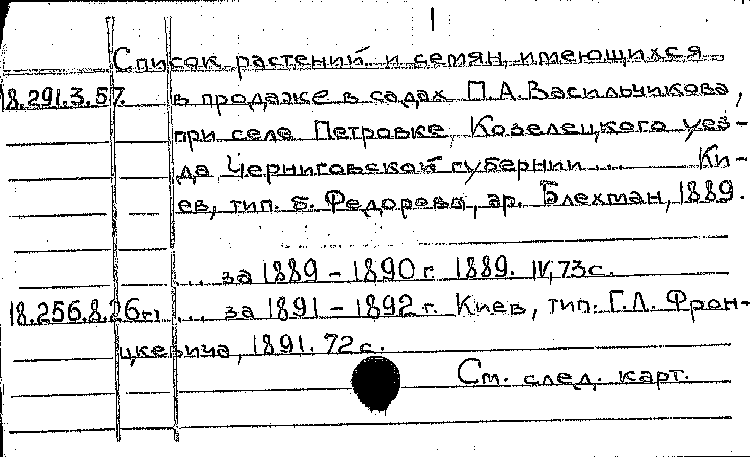 1
Список растений и семян, имеющихся
18.291.3.57. в продаже в садах П.А.Васильчикова,
при селе Петровке, Козелецкого уез-
да, Черниговской губернии ... Ки-
ев, тип. Е. Федорова, ар. Блехман, 1889.
... за 1889 - 1890 г. 1889. IV, 73 с.
18.256.8.26 ... за 1891 - 1892 г. Киев, тип. Г.Л. Фрон-
цкевича, 1891. 72 с.
См. след. карт.